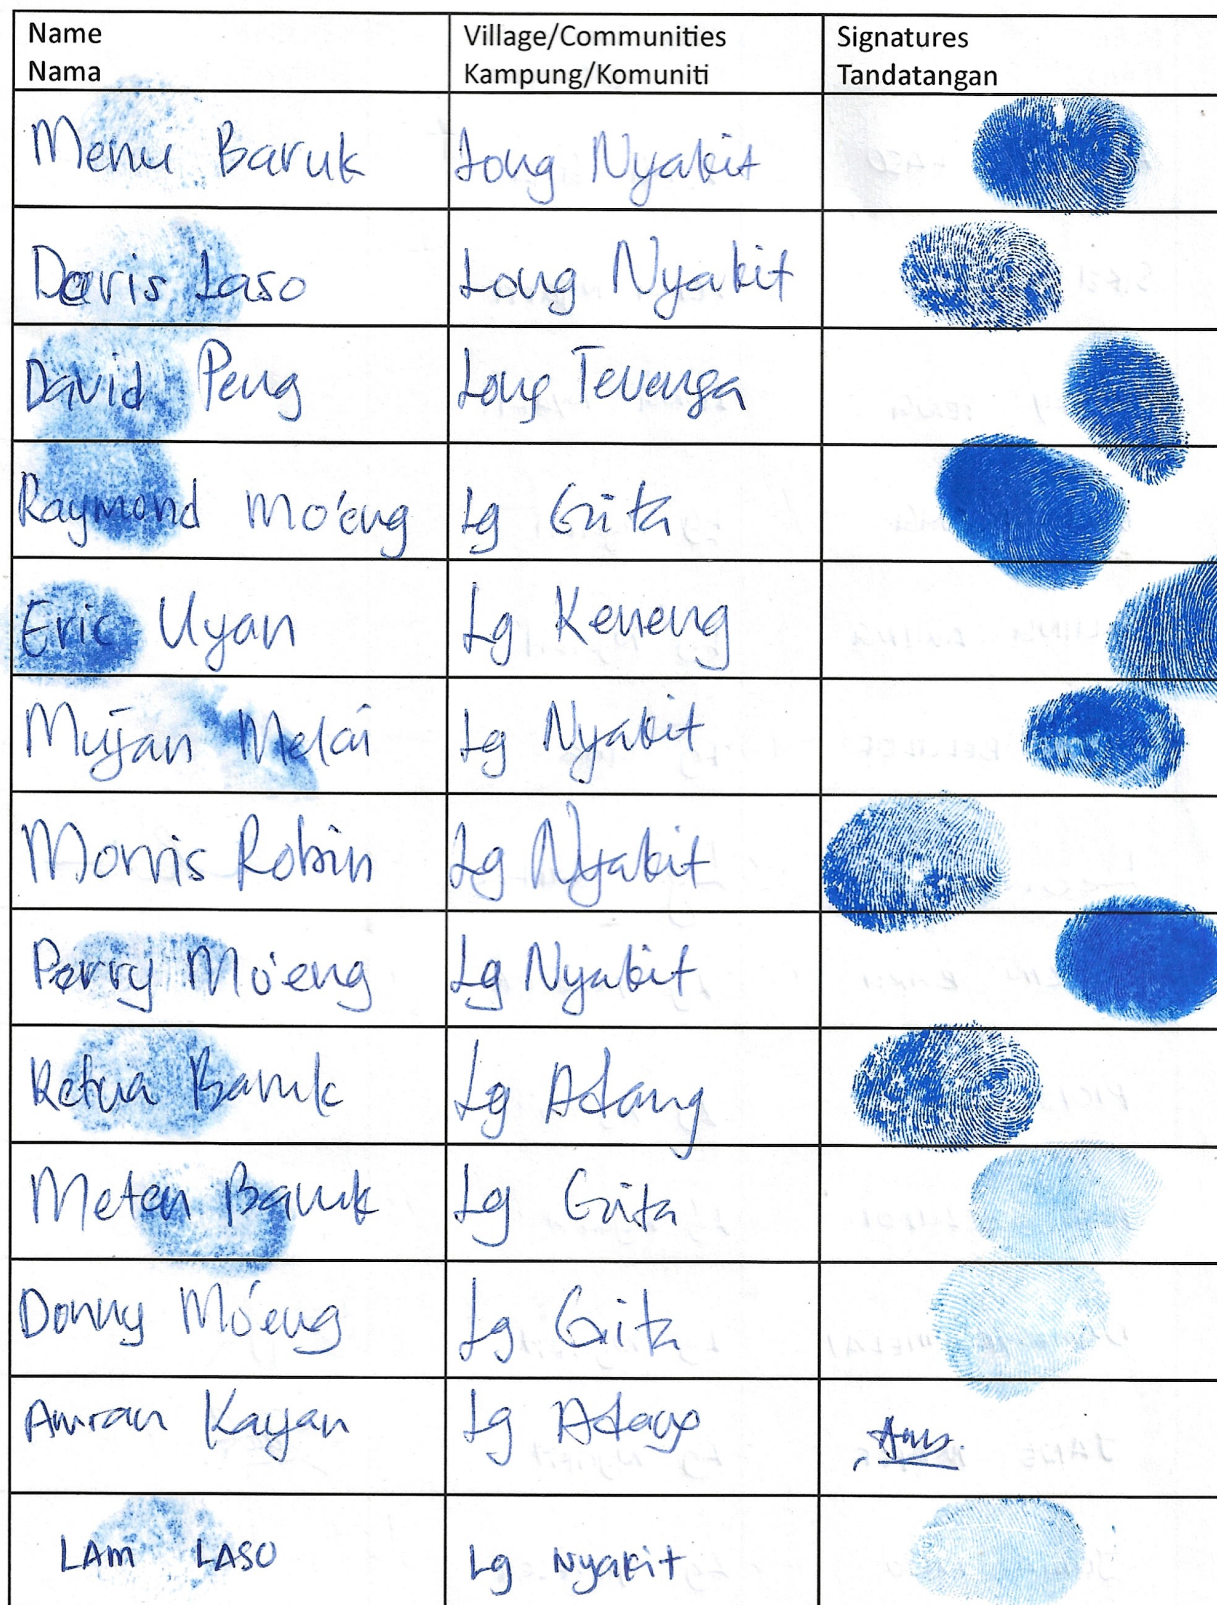 Name
Nama
Village/Communities
Kampung/Komuniti
Signatures
Tandatangan
Menu Baruk Long Nyakit
Davis Laso Long Nyakit
David Peng Long Tevenga
Raymond Mo'eng Lg Gita
Eric Uyan Lg Keneng
Mujan Melai Lg Nyakit
Morris Robin Lg Nyakit
Perry Mo'eng Lg Nyakit
Ketua Baruk Lg Adang
Meten Baruk Lg Gita
Donny Mo'eng Lg Gita
Amran Kayan Lg Adang
LAM LASO Lg Nyakit